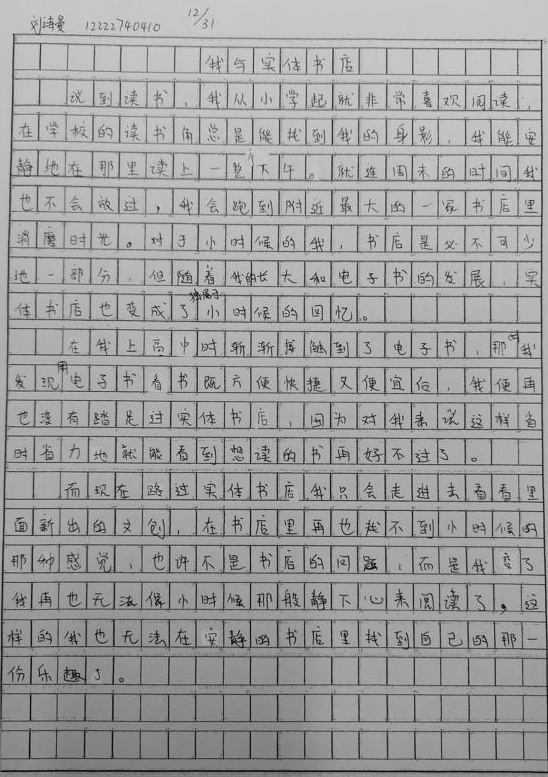 刘诗曼 12222740410 12/31
我与实体书店
说到读书，我从小学起就非常喜欢阅读，
在学校的读书角总是能找到我的身影，我能安
静地在那里读上一整个下午。就连周末的时间我
也不会放过，我会跑到附近最大的一家书店里
消磨时光。对于小时候的我，书店是必不可少
地一部分，但随着我的长大和电子书的发展，实
体书店也变成了独属于小时候的回忆。
在我上高中时渐渐接触到了电子书，那时我
发现用电子书看书既方便快捷又便宜后，我便再
也没有踏足过实体书店，因为对我来说这样省
时省力地就能看到想读的书再好不过了。
而现在路过实体书店我只会走进去看看里
面新出的文创，在书店里再也找不到小时候的
那种感觉，也许不是书店的问题，而是我变了
我再也无法像小时候那般静下心来阅读了。这
样的我也无法在安静的书店里找到自己的那一
份乐趣了。